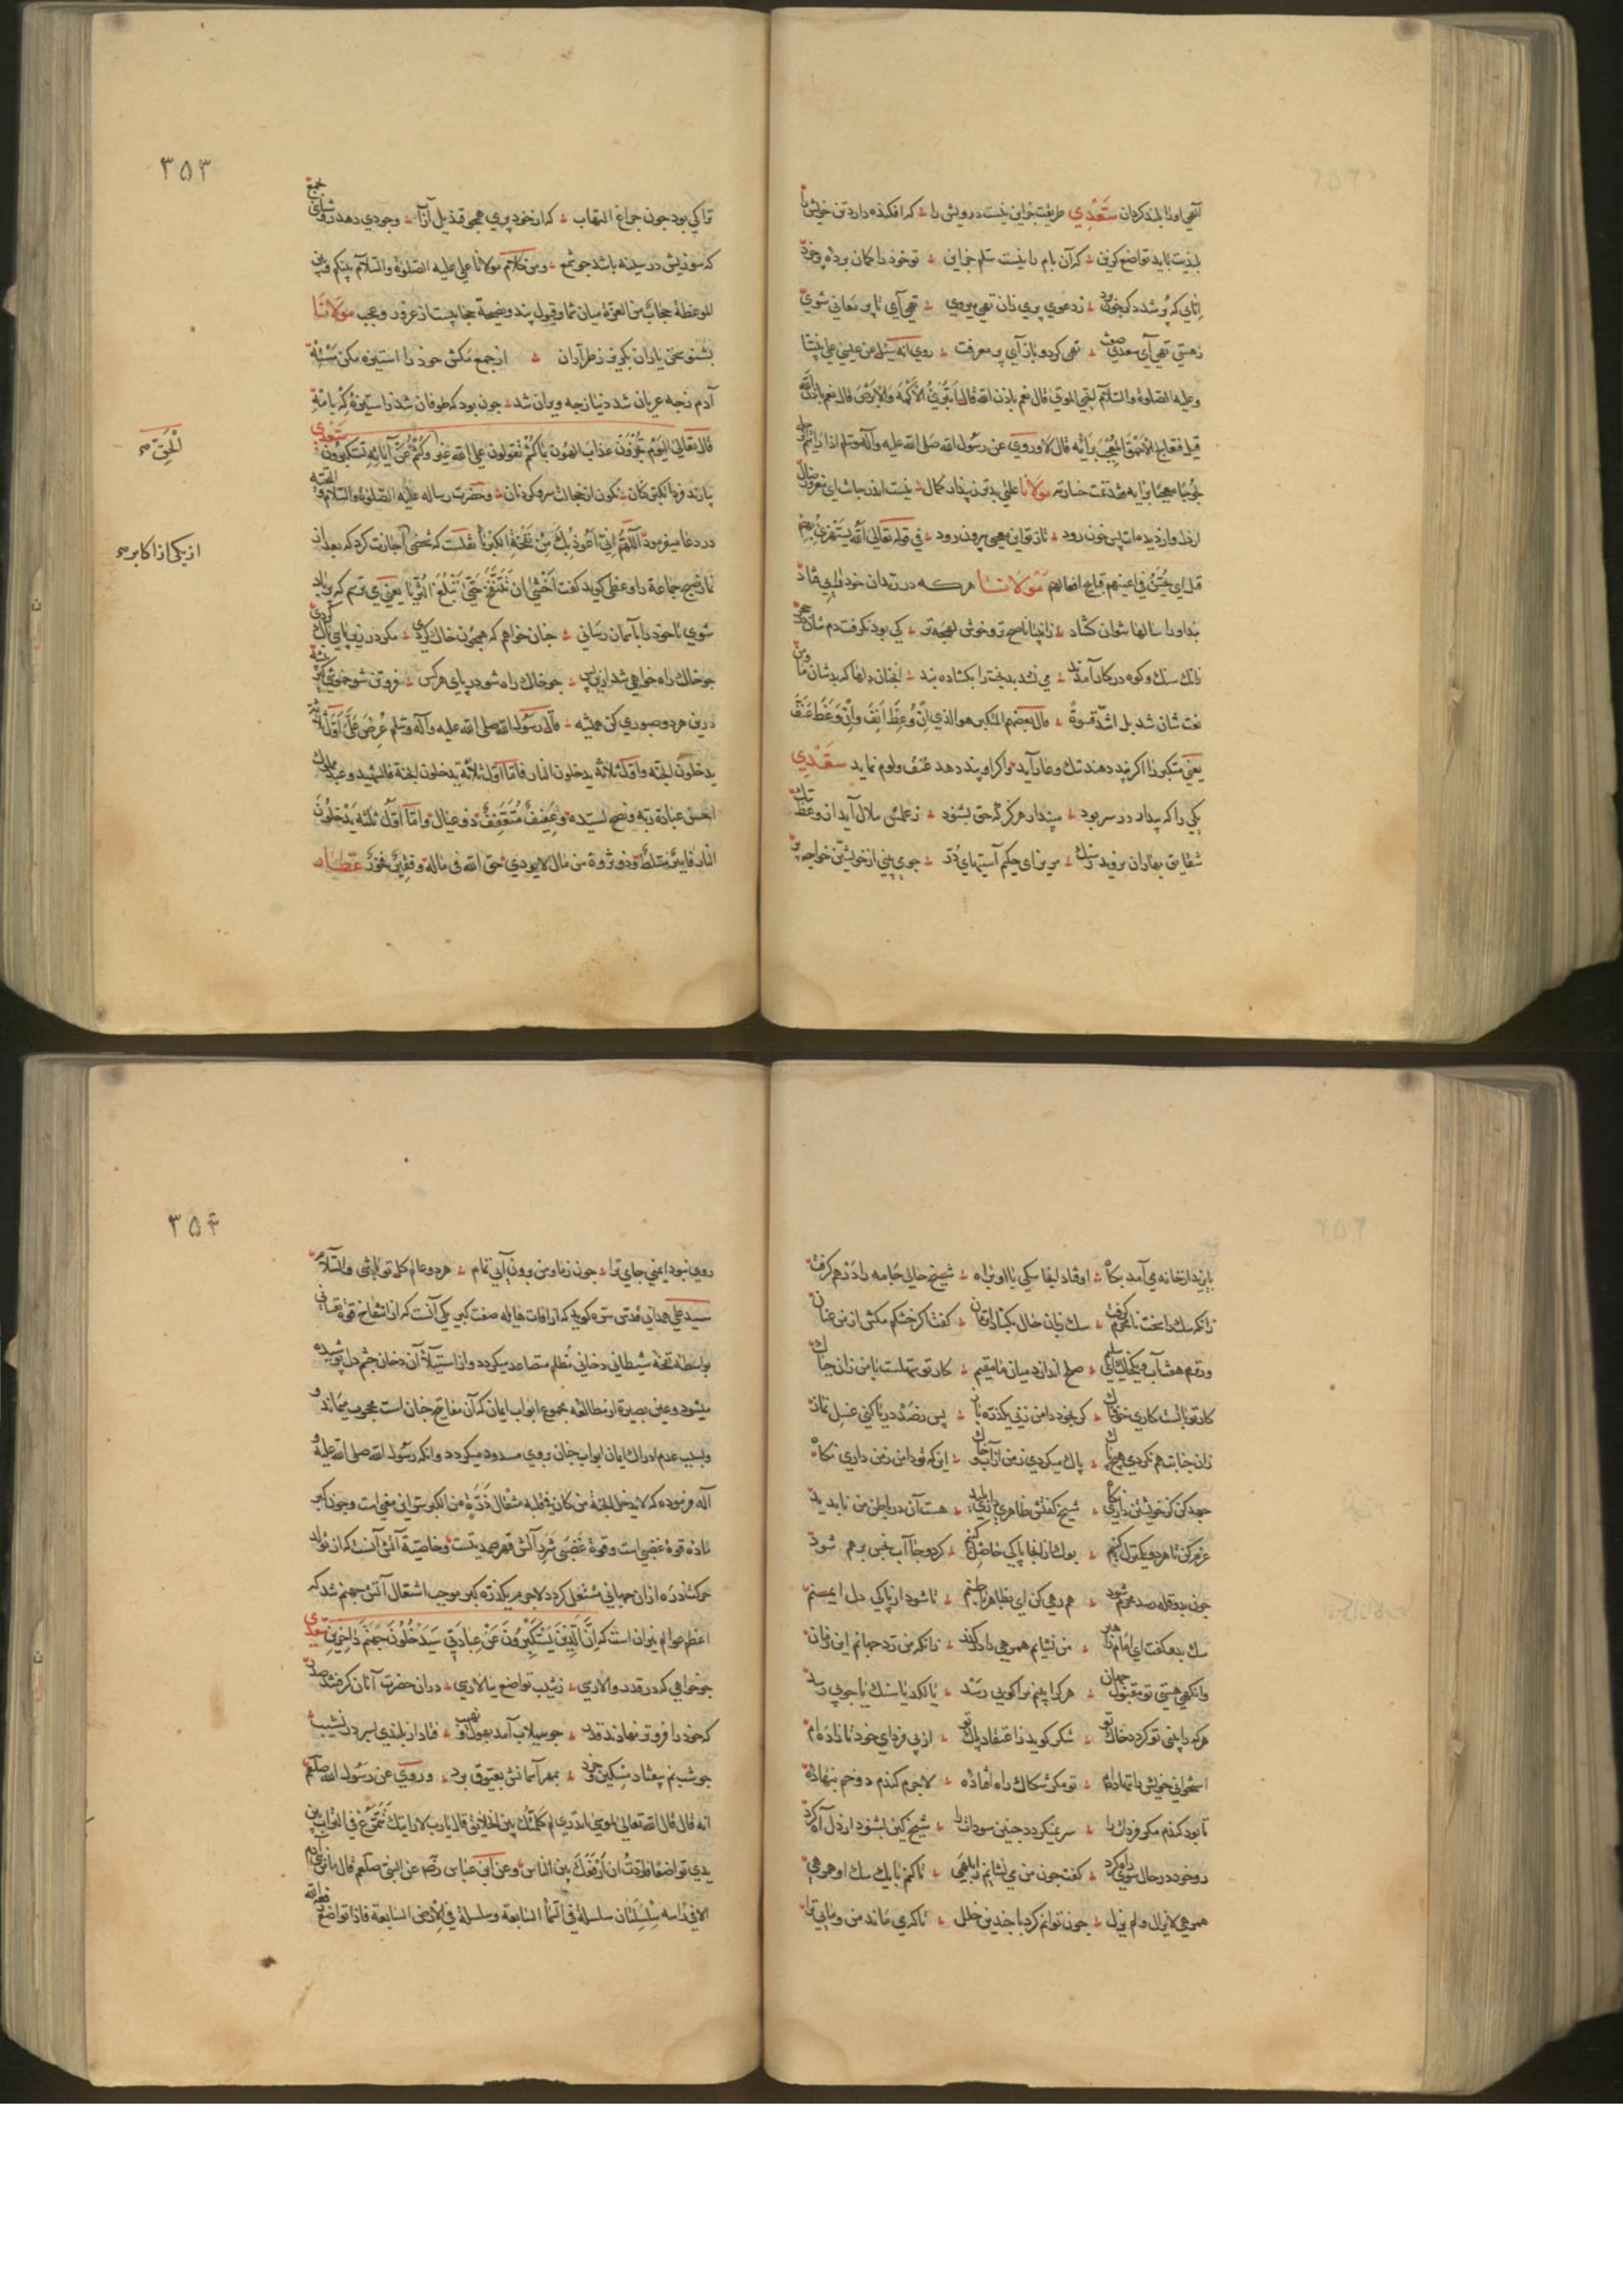 آنهی اورا بلند کردان سَعْدِي طریقت جز این نیست درویش را که افکنده دارد تن خویش را
بلندیت باید تواضع کزین که آن بام را نیست سلم جز این تو خود را کمان برده پر خرد
انائی که پر شد دکر چون برد ز دعوي پري زان تهي میروي تهي آي تا پر معاني شوي
ز هستي تهي آي سعدي صفت تهي کرد و باز آي پر معرفت روي انه سئل عن عیسی علی نبینا
وعلیه الصلوة والسلام تحیي الموتي قال نعم باذن الله قال تبرئ الاکمه والابرص قال نعم باذن الله
قیل فعالج الاحمق المعجب برأیه قال لا وروي عن رسول الله صلی الله علیه وآله وسلم اذا رایتم الرجل
لجوجا معجبا برایه فقد تمت خسارته مولانا علتي بدتر ز پندار کمال نیست اندر جانت اي مغرور ضال
از دل و از دیده ات بس خون رود تا ز تو این معجبي بیرون رود في قوله تعالی الله یستهزئ بهم
قیل اي یحسن في اعینهم قبایح افعالهم مَوْلَانَا هرکه در زندان خود بیني فتاد
پند اورا سالها نتوان کشاد
نانك سنك و کوه در کار آمدند مي نشد بدبخت را بکشاده بند
نعت شان شد بل اشد قسوة قال بعضهم المتکبر هو الذي ان وعظ انف وان وعظ عنف
یعني متکبر را اکر پند دهند ننك و عار آید واکر او پند دهد عنف و لوم نماید سَعْدِي
یکي را که پندار در سر بود مپندار هرکز که حق بشنود ز علمش ملال آید از وعظ ننك
شقایق بباران نروید ز سنك مریز اي حکیم آستینهاي در چو مي بیني از خویشتن خواجه پر
۳۵۳
ترا کي بود چون چراغ التهاب که از خود پري همچو قندیل از آب وجودي دهد روشنائي بجمع
که سوزیش در سینه باشد چو شمع ومن کلام مولانا علي علیه الصلوة والسلام بینکم وبین
الموعظة حجاب من العزة میان شما و قبول پند و نصیحة حجابیست از غرور و عجب مَوْلَانَا
بشنو سخن یاران بکریز ز طراران از جمع مکش خود را استیزه مکن مَسْئَلَهْ
آدم ز چه عریان شد دنیا ز چه ویران شد چون بود که طوفان شد ز استیزه که با مه
قال تعالی الیوم تجزون عذاب الهون بما کنتم تقولون علی الله غیر وکنتم عن آیاته تستکبرون سَعْدِي
اَلْحَقّ صح
درد دعا میفرمود اللهم اني اعوذ بك من نفخة الکبریا نقلست که شخصي اجازت کرد که بعد از
از یکی از اکابر صح
نماز صبح جماعة را وعظي کوید کفت اخشی ان تنتفخ حتی تبلغ الثریا یعني مي ترسم که پر باد
شوي تا خود را بآسمان رساني چنان خواهم که همچون خاك کردي مکر در زیر پاي پاك کردي
چو خاك راه خواهي شد ازین پس چو خاك راه شو در پاي هر کس فروتن شو خموشي کن همیشه
درین هر دو صبوري کن همیشه قال رسول الله صلی الله علیه وآله وسلم عرض علي اول ثلاثة
یدخلون الجنة واول ثلاثة یدخلون النار فاما اول ثلاثة یدخلون الجنة فالشهید وعبد مملوك
احسن عبادة ربه ونصح لسیده وعفیف متعفف ذو عیال واما اول ثلثة یدخلون
النار فامیر متسلط وذو ثروة من مال لا یؤدي حق الله في ماله وفقیر فخور عَطَّار
بایزید از خانه مي آمد پکاه اوفتاد آنجا سکي با او براه شیخ حالي جامه را در هم کرفت
زانکه سك را سخت نامحرم کرفت سك زبان حال بکشاد آن زمان کفت اکر خشکم مکش از من عنان
ور ترم هفت آب و یك خاك اي سلیم صلح اندازد میان ما مقیم کار تو سهلست با من زان چه باك
کار تو با تست کاري خوفناك کر بخود دامن زني یکذره باز پس ز صد دریا کني غسل نماز
زان جنابت هم نکردي هیچ پاك پاك میکردي ز من از آب و خاك این که تو دامن ز من داري نکاه
جهد کن کز خویشتن داري نکاه شیخ کفتش ظاهري داري پلید هست آن در باطن من ناپدید
عزم کن تا هر دو یك منزل کنیم بوك از اینجا پاکي حاصل کنیم کر دو جا آب نجس بر هم شود
چون بدو قله رسد محرم شود هم رهي کن اي بظاهر باطنم تا شود از پاکي دل ایمنم
سك بدو کفت اي امام راه بر من نشایم همرهي را در کذر زانکه من رد جهانم این زمان
وانکهي هستي تو مقبول جهان هر کرا بینم مرا کوبي رسد یا لکد یا سنك یا چوبي رسد
هر کرا بیني تو کردد خاك تو شکر کوید ز اعتقاد پاك تو از پي فرداي خود تا زاده ام
استخواني خویش را ننهاده ام تو مکر شکاك راه افتاده لاجرم کندم دو خم بنهاده
تا بود کندم مکر فردات را سر نمیکردد چنین سودات را شیخ کین بشنود از دل آه کرد
رو خود در حال سوي راه کرد کفت چون من مي نشایم ز ابلهي تا کنم با یك سك او همرهي
همرهي لا یزال و لم یزل چون توانم کرد با چندین خلل تا کري ماند من و مایي ترا
۳۵۴
روي نبود ایمني جاي ترا چون ز ما و من برون آیي تمام هر دو عالم کل تو باشي والسلام
سید علي همداني قدس سره کوید که از آفات هایله صفت کبر یکي آنست که از انتفاخ قوة نفساني
بواسطه نفخه شیطاني دخاني مظلم متصاعد میکردد و از استیلاء آن دخان چشم دل پوشیده
میشود و عین بصیرة از مطالعه مجموع ابواب ایمان که آن مفاتیح جنان است محجوب میماند و
وبسبب عدم ادراك ایمان ابواب جنان بر وي مسدود میکردد وانکه رسول الله صلی الله علیه و
آله فرموده که لا یدخل الجنة من کان في قلبه مثقال ذرة من الکبر سر این معني است و چون کبر
ماده قوة غضبي است و قوة غضبي شرر آتش قهر صمدیتست و خاصیة آتش آنست که از تولد
حرکت ذره ازان جهاني مشتعل کردد لاجرم یکذره کبر موجب اشتعال آتش جهنم شد که
اعظم عوالم نیران است که ان الذین یستکبرون عن عبادتي سیدخلون جهنم داخرین سعدي
چو خواهي که در قدر والا رسي ز شیب تواضع ببالا رسي دران حضرت آنان کرفتند صدر
که خود را فروتر نهادند قدر چو سیلاب آمد بهول و نهیب فتاد از بلندي بسر در نشیب
چو شبنم بیفتاد مسکین و خرد بمهر آسمانش بعیوق برد وروي عن رسول الله صلعم
انه قال قال الله تعالی لموسی اتدري لم کلمتك من بین الخلایق قال یا رب لا رایتك تتمرغ في التراب بین
یدي تواضعا فاردت ان ارفعك بین الناس وعن ابن عباس رضم عن النبي صلعم قال ما من آدمي
الا في راسه سلسلتان سلسلة في السماء السابعة وسلسلة في الارض السابعة فاذا تواضع رفعه الله